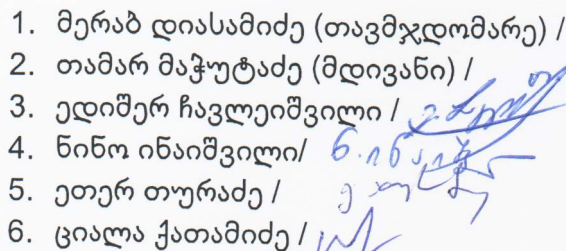 1. მერაბ დიასამიძე (თავმჯდომარე) /
2. თამარ მაჭუტაძე (მდივანი) /
3. ედიშერ ჩავლეიშვილი /
4. ნინო ინაიშვილი/
5. ეთერ თურაძე /
6. ციალა ქათამიძე /